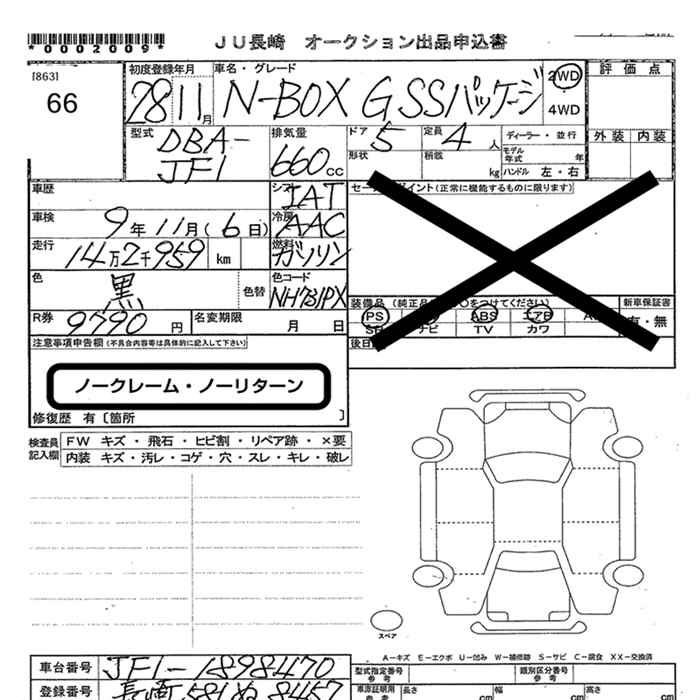 *0002009*
JU長崎 オークション出品申込書
[863]
66
初度登録年月
28 11月
車名・グレード
N-BOX G SSパッケージ
2WD
4WD
評価点
外装 内装
型式
DBA-
JF1
排気量
660cc
ドア 5
定員 4人
ディーラー・並行
形状
積載 kg
モデル年式 年
ハンドル 左・右
車歴
シフト IAT
車検 9年11月(6日)
冷房 AAC
走行 14万2千959 km
燃料 ガソリン
色 黒
色替
色コード NH731PX
R券 9790円
名変期限 月 日
ポイント(正常に機能するものに限ります)
装備品 (純正品 ○をつけてください)
新車保証書
有・無
PS ABS エアB
ナビ TV カワ
後日
注意事項申告欄(不具合内容等は具体的に記入して下さい)
ノークレーム・ノーリターン
修復歴 有〔箇所 〕
検査員記入欄
FW キズ・飛石・ヒビ割・リペア跡・×要
内装 キズ・汚レ・コゲ・穴・スレ・キレ・破レ
スペア
A-キズ E-エクボ U-凹み W-補修跡 S-サビ C-腐食 XX-交換済
車台番号 JF1-1898470
型式指定番号 参考
類別区分番号 参考
登録番号 長崎581ぬ8457
車庫証明用 参考
長さ cm 幅 cm 高さ cm